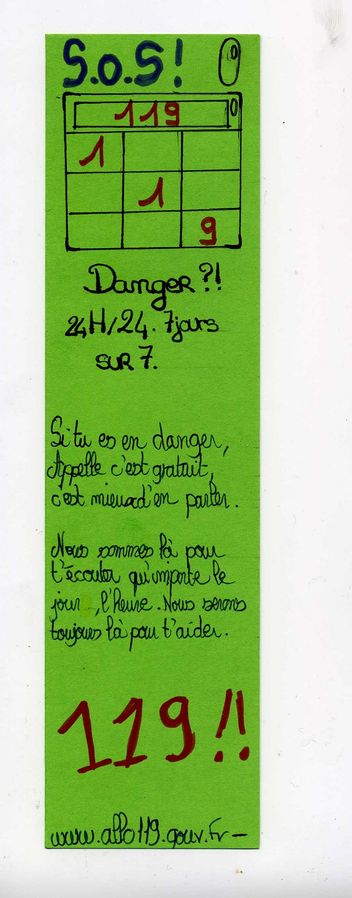 S.O.S!
119
1
1
9
Danger ?!
24H/24. 7jours
SUR 7.
Si tu es en danger,
Appelle c'est gratuit,
c'est mieux d'en parler.
Nous sommes là pour
t'écouter qu'importe le
jour, l'heure. Nous serons
toujours là pour t'aider.
119!!
www.allo119.gouv.Fr